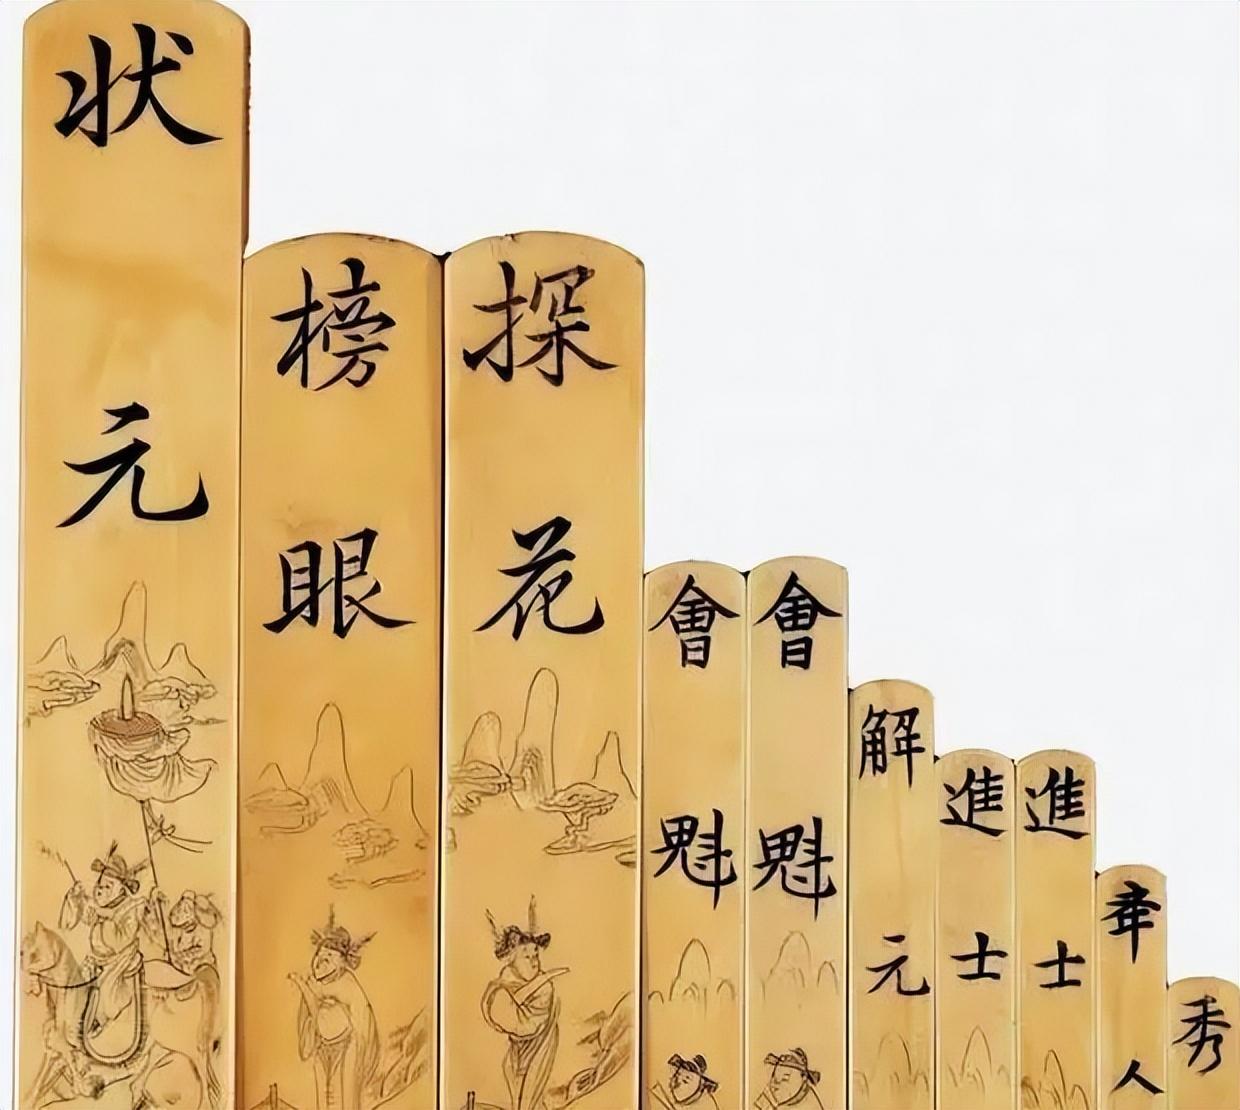 状元
榜眼
探花
會魁
會魁
解元
進士
進士
秀